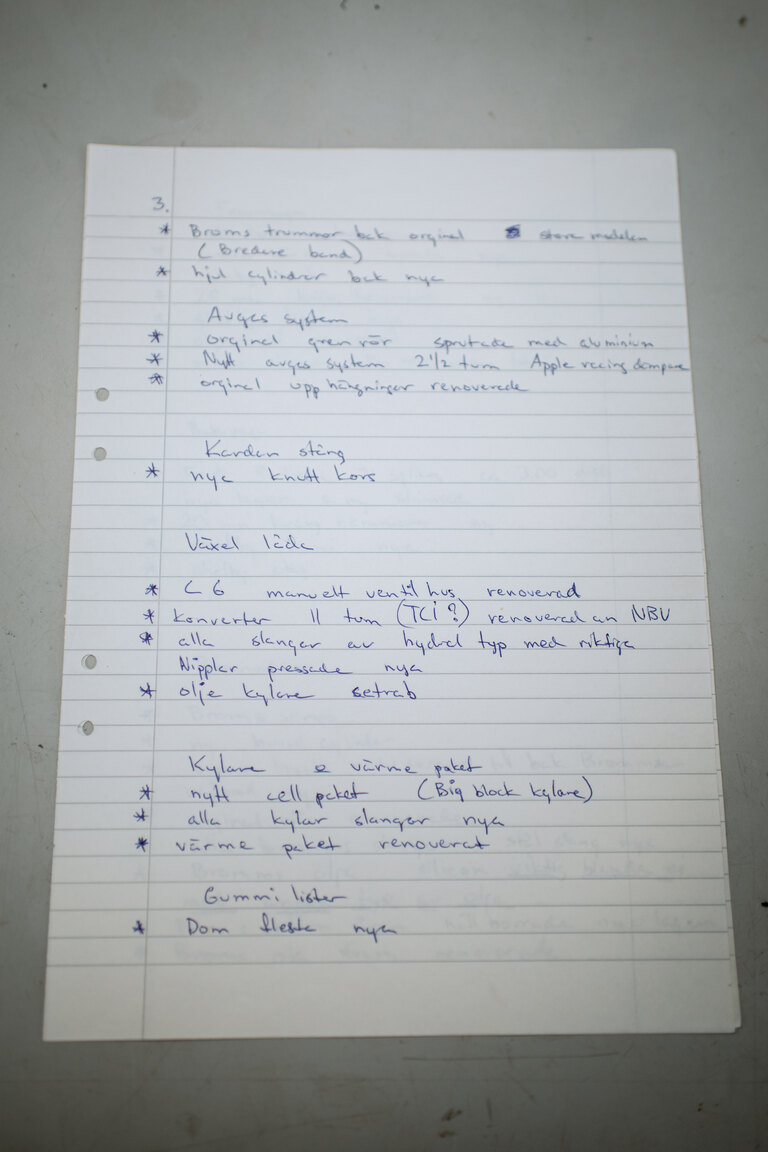 3.
* Broms trummor bak orginal stora modelen
(Bredare band)
* hjul cylindrar bak nya
Avgas system
* orginal grenrör sprutade med aluminium
* Nytt avgas system 2 1/2 tum Apple racing dämpare
* orginal upp hägningar renoverade
Kardan stång
* nya knutt kors
Växel låda
* C6 manuelt ventil hus renoverad
* konverter 11 tum (TCI?) renoverad an NBV
* alla slangar av hydral typ med riktiga
Nipplar pressade nya
* olje kylare setrab
Kylare e värme paket
* nytt cell paket (Big block kylare)
* alla kylar slangar nya
* värme paket renoverat
Gummi lister
* Dom flesta nya